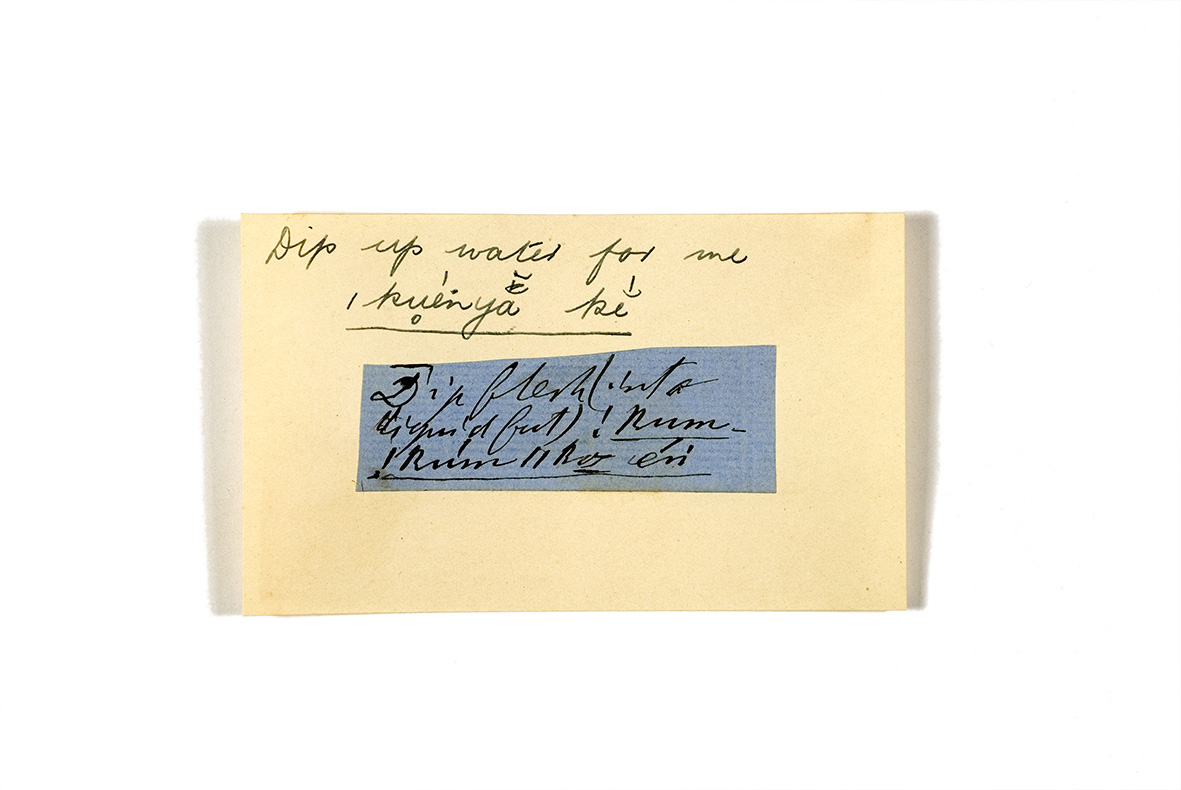 Dip up water for me
ǀkụényā̆ kĕ́
Dip flesh (into
liquid fut) ! kum-
!kúm ǁko én